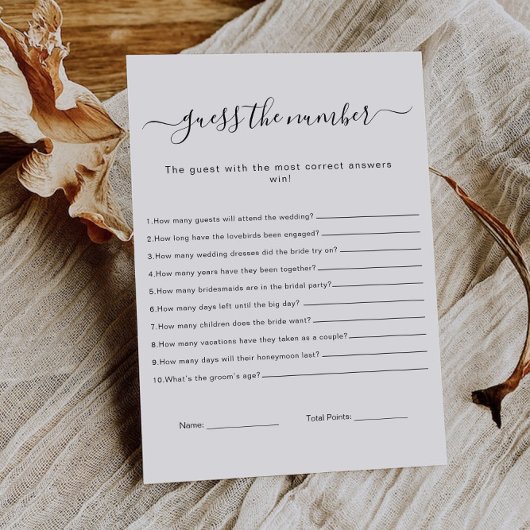 guess the number
The guest with the most correct answers
win!
1.How many guests will attend the wedding?
2.How long have the lovebirds been engaged?
3.How many wedding dresses did the bride try on?
4.How many years have they been together?
5.How many bridesmaids are in the bridal party?
6.How many days left until the big day?
7.How many children does the bride want?
8.How many vacations have they taken as a couple?
9.How many days will their honeymoon last?
10.What's the groom's age?
Name: Total Points: